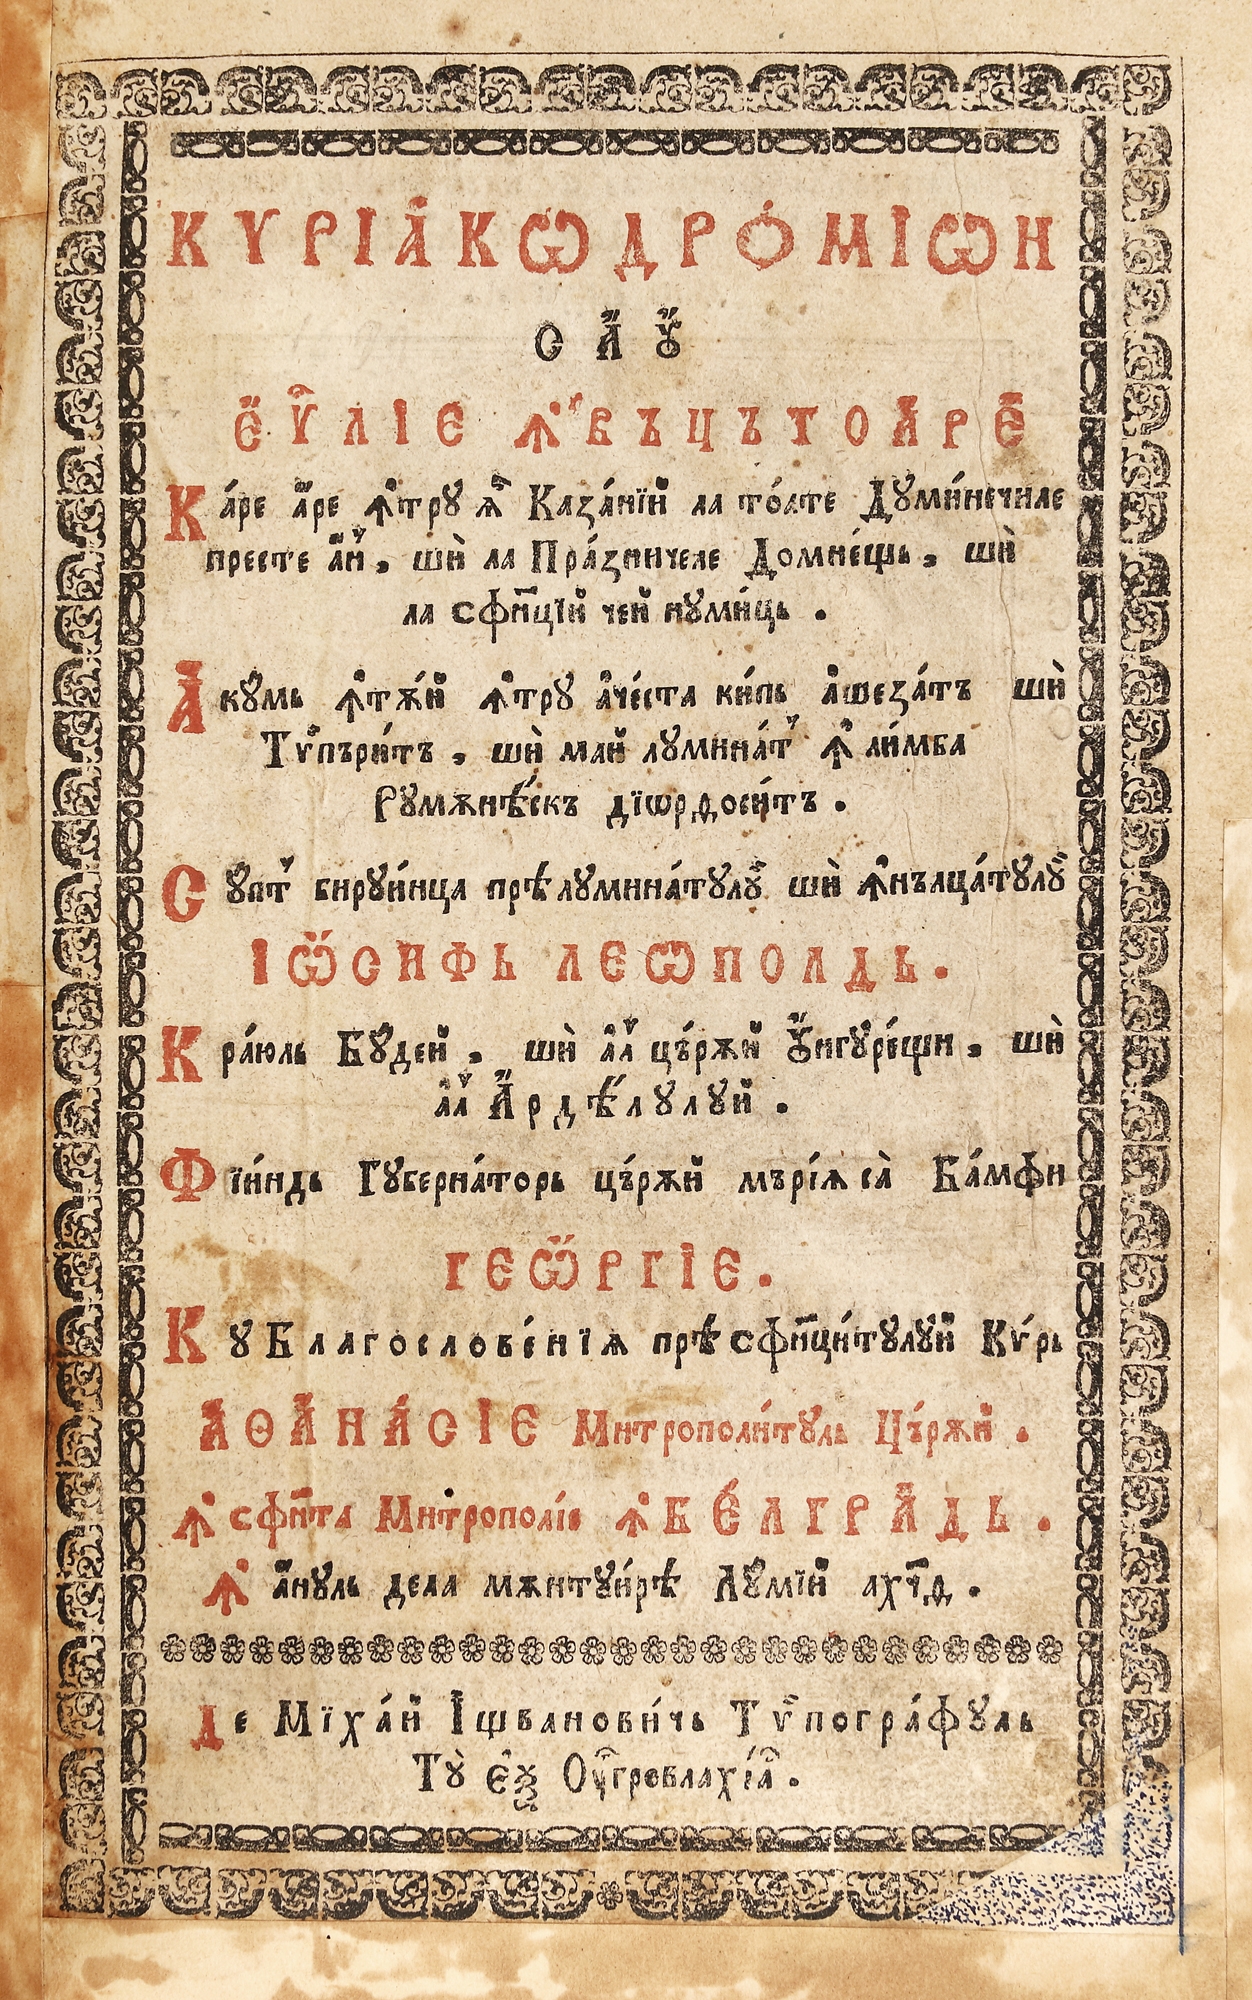 КѴРІА́КѠДРО́МІѠН
САꙊ
ЕѴ҃ЛІЕ ꙞВЪЦЪТОАРЕ
Ка́ре а҆́ре ꙟ҆тру ѧ҆̀ Каза́нїй ла то́ате Думи́нечиле
престе а҆́н, шѝ ла Пра́зничеле Домне́щь, шѝ
ла сфн҃цїй чей нуми́ць.
А҆кꙋмь ꙟ҆тѫ́й ꙟ҆тру а҆че́ста ки́пь а҆шеза́тъ шѝ
Тѵ҆пъри́тъ, шѝ май лꙋмина́т ꙟ҆ ли́мба
Рꙋмѫнѣ́скъ дїѡрдоси́тъ.
Сꙋпт бирꙋи́нца прѣлꙋмина́тꙋлꙋй шѝ ꙟ҆нълца́тꙋлꙋй
ІѠ҆СИФЬ ЛЕѠПОЛДЬ.
Кра́юль Бꙋдей, шѝ а҆л цъ́рѫй Ꙋ҆нгꙋре́щи, шѝ
а҆л А҆рдѣ́лꙋлꙋй.
Фїи́ндь Гꙋберна́торь цъ́рѫй мъріѧ са̀ Ба́мфи
ГЕѠ҆РГІЕ.
Кꙋ Благослове́нїѧ прѣ сфн҃ци́тꙋлꙋй Кѵ́рь
АѲАНА́СІЕ Митрополи́тꙋль Цъ́рѫй.
Ꙟ҆ сфн҃та Митрополі́е ꙟ҆ БЕ́ЛГРАДЬ.
Ꙟ҆ а҆нꙋль дела мѫнтꙋи́рѣ Лꙋмїй ахч҃д.
Де Мїха́й І҆щванови́чь Тѵ҆погра́фꙋль
Тꙋ̀ е҆ѯ Оу҆гровлахїа.